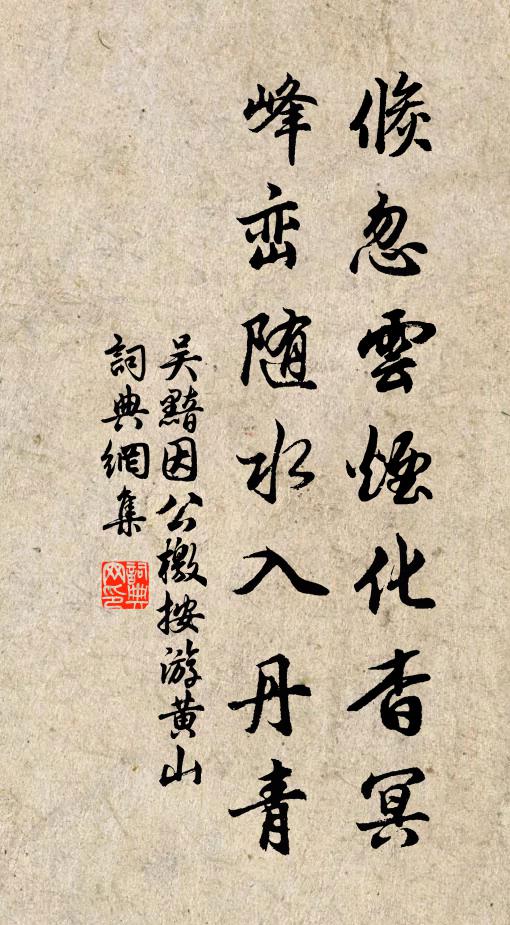 倏忽雲煙化杳冥
峰峦随水入丹青
吴黯因公檄按游黄山
詞典網集
詞典
网印